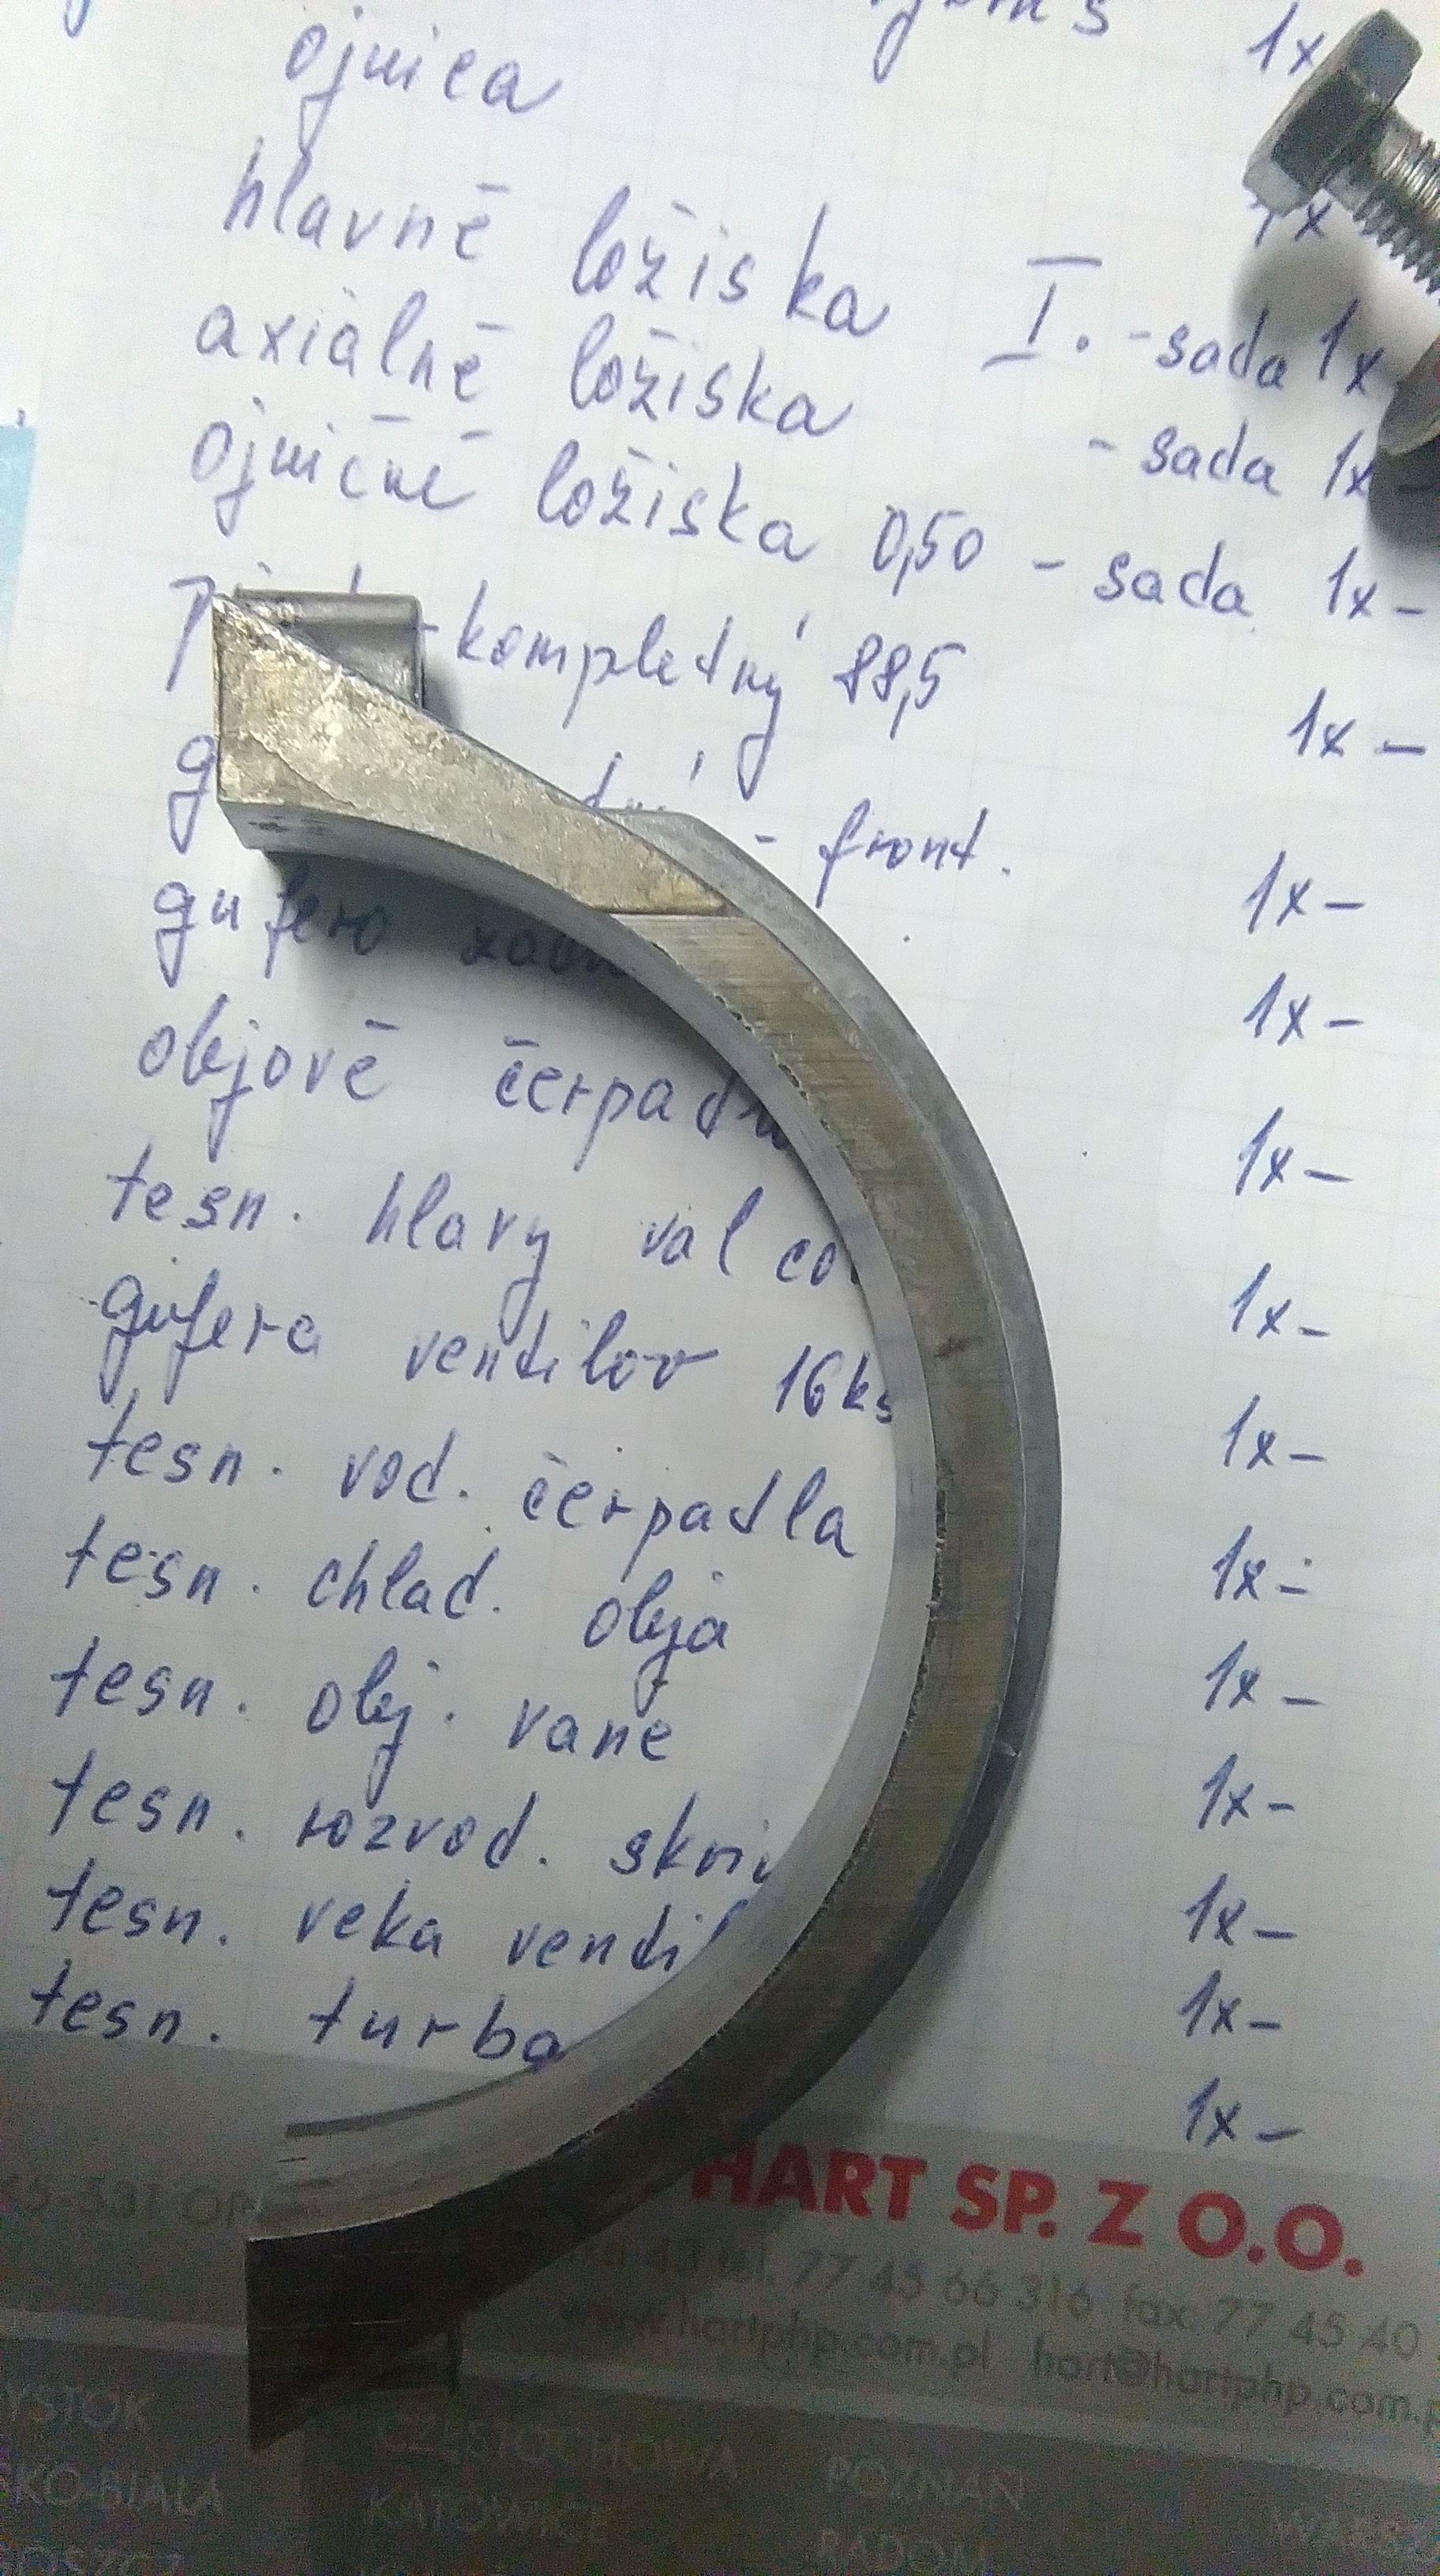 1x
ojnica
1x
hlavné ložiska I. - sada 1x
axiálné ložiska - sada 1x -
ojničné ložiska 0,50 - sada 1x -
-kompletný 88,5 1x -
- front. 1x -
gufero 1x -
olejové čerpadlo 1x -
tesn. hlavy valcov 1x -
gufera ventilov 16ks 1x -
tesn. vod. čerpadla 1x -
tesn. chlad. oleja 1x -
tesn. olej. vane 1x -
tesn. rozvod. 1x -
tesn. veka 1x -
tesn. turba 1x -
HART SP. Z O.O.
43 tel. 77 45 66 316 fax 77 45 40
www.hartphp.com.pl hart@hartphp.com.p
CZĘSTOCHOWA POZNAŃ
KATOWICE RADOM